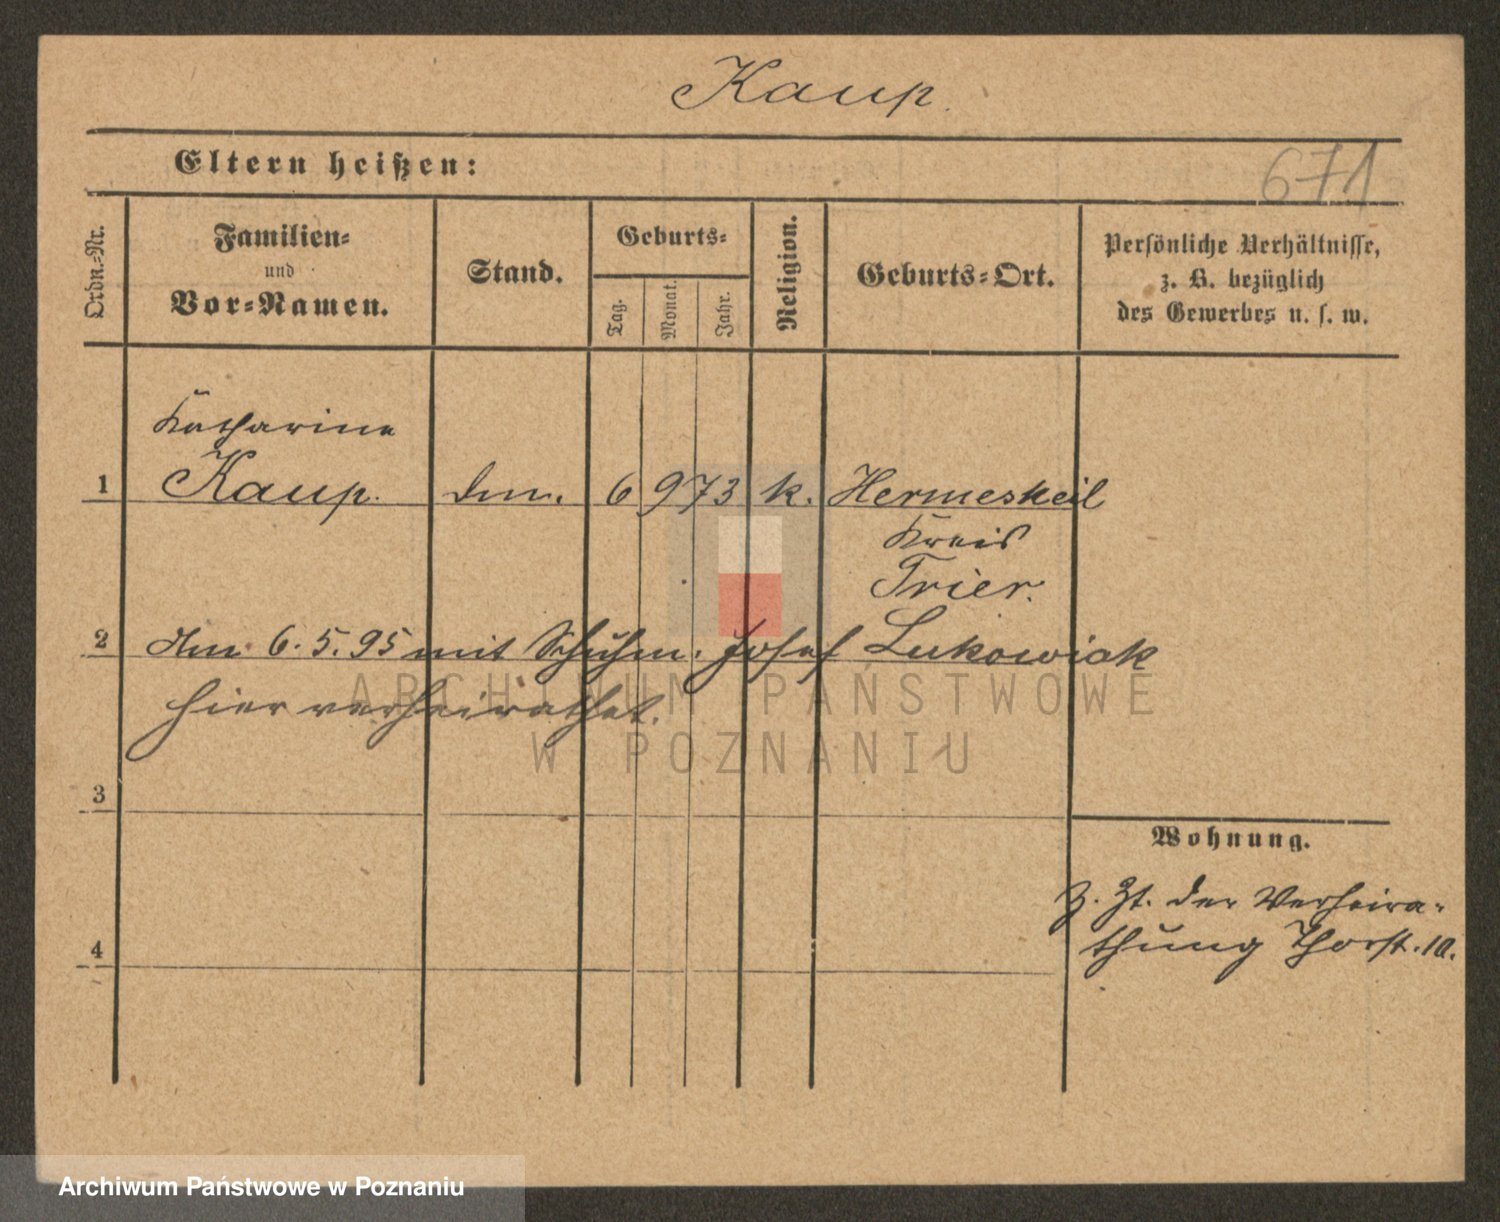 Kaup.
Eltern heißen:
671
Ordn.-Nr.
Familien-
und
Vor-Namen.
Stand.
Geburts-
Tag.
Monat.
Jahr.
Religion.
Geburts-Ort.
Persönliche Verhältnisse,
z. B. bezüglich
des Gewerbes u. s. w.
Katharine
1 Kaup. 6 9 73 k. Hermeskeil
Kreis
Trier.
2 Am 6.5.95 mit Schuhm. Josef Lukowiak
hier verheirathet.
ARCHIWUM PAŃSTWOWE
W POZNANIU
3
Wohnung.
z. Zt. der Verheira-
thung Thorst. 10.
4
Archiwum Państwowe w Poznaniu